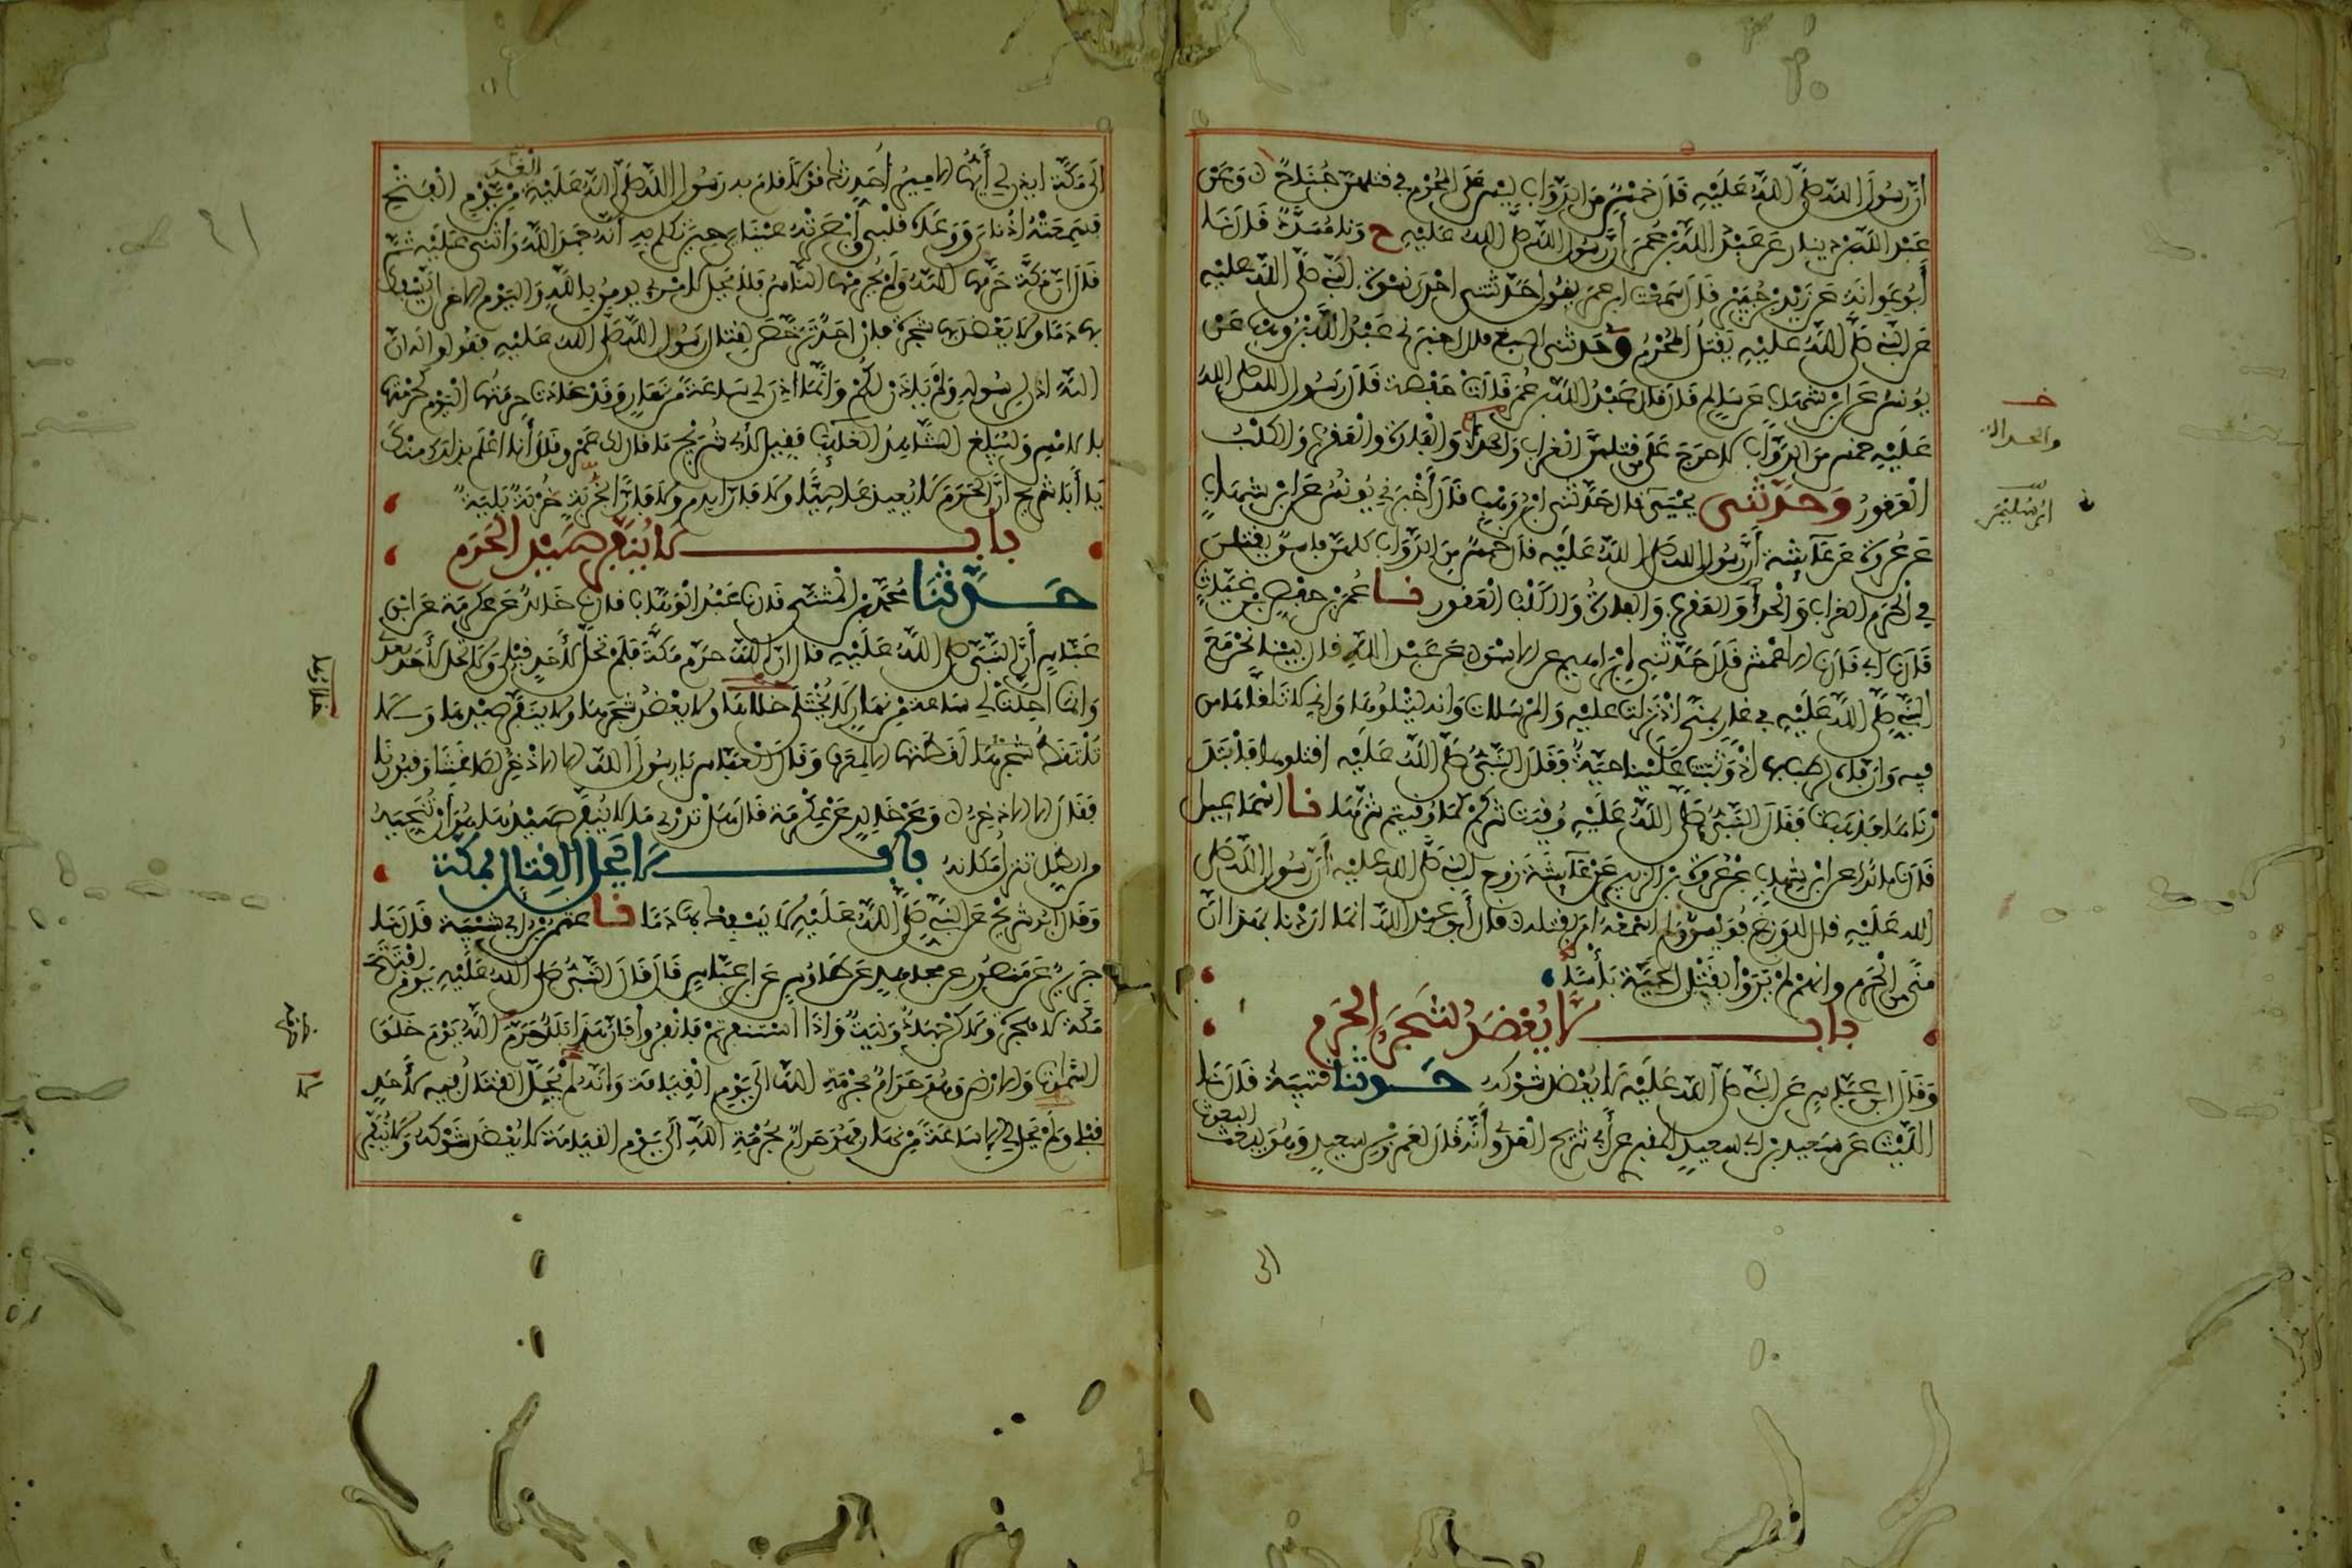 أن رسول الله صلى الله عليه قال خمس من الدواب ليس على المحرم في قتلهن جناح وعن
عبد الله بن دينار عن عبد الله بن عمر أن رسول الله صلى الله عليه ح ونا مسدد قال نا
أبو عوانة عن زيد بن جبير قال سمعت ابن عمر يقول حدثتني احدى نسوة النبي صلى الله عليه
عن النبي صلى الله عليه يقتل المحرم وحدثني اصبغ قال اخبرني عبد الله بن وهب عن
يونس عن ابن شهاب عن سالم قال قال عبد الله بن عمر قالت حفصة قال رسول الله صلى الله
عليه خمس من الدواب لا حرج على من قتلهن الغراب والحدأ والفارة والعقرب والكلب
العقور وحدثني يحيى قال حدثني ابن وهب قال أخبرني يونس عن ابن شهاب
عن عروة عن عائشة أن رسول الله صلى الله عليه قال خمس من الدواب كلهن فاسق يقتلهن
في الحرم الغراب والحدأ والعقرب والفارة والكلب العقور نا عمر بن حفص بن غياث
قال نا أبي قال نا الاعمش قال حدثني ابراهيم عن الاسود عن عبد الله قال بينما نحن مع
النبي صلى الله عليه في غار بمنى اذ نزلت عليه والمرسلات وانه ليتلوها واني لاتلقاها من
فيه وان فاه لرطب بها اذ وثبت علينا حية فقال النبي صلى الله عليه اقتلوها فابتدر
ناها فذهبت فقال النبي صلى الله عليه وقيت شركم كما وقيتم شرها نا اسماعيل
قال نا مالك عن ابن شهاب عن عروة بن الزبير عن عائشة زوج النبي صلى الله عليه أن رسول الله صلى
الله عليه قال للوزغ فويسق ولم اسمعه امر بقتله قال أبو عبد الله انما اردنا بهذا ان
منى من الحرم وانهم لم يروا بقتل الحية بأسا
باب لا يعضد شجر الحرم
وقال ابن عباس عن النبي صلى الله عليه لا يعضد شوكه حدثنا قتيبة قال نا
الليث عن سعيد بن ابي سعيد المقبري عن أبي شريح العدوي أنه قال لعمرو بن سعيد وهو يبعث البعوث
الى
خ
والحدأة
ابن سليمن
الى مكة ايذن لي أيها الامير أحدثك قولا قام به رسول الله صلى الله عليه الغد من يوم الفتح
فسمعته اذناي ووعاه قلبي وأبصرته عيناي حين تكلم به أنه حمد الله وأثنى عليه ثم
قال ان مكة حرمها الله ولم يحرمها الناس فلا يحل لامرئ يومن بالله واليوم الاخر ان يسفك
بها دما ولا يعضد بها شجرة فان احد ترخص لقتال رسول الله صلى الله عليه فقولوا له ان
الله اذن لرسوله ولم ياذن لكم وانما اذن لي ساعة من نهار وقد عادت حرمتها اليوم كحرمتها
بالامس وليبلغ الشاهد الغايب فقيل لأبي شريح ما قال لك عمرو قال أنا اعلم بذلك منك
يا أبا شريح ان الحرم لا يعيذ عاصيا ولا فارا بدم ولا فارا بخربة خربة بلية
باب لا ينفر صيد الحرم
حدثنا محمد بن المثنى قال نا عبد الوهاب قال نا خالد عن عكرمة عن ابن
عباس أن النبي صلى الله عليه قال ان الله حرم مكة فلم تحل لأحد قبلي ولا تحل لأحد بعدي
وانما احلت لي ساعة من نهار لا يختلى خلاها ولا يعضد شجرها ولا ينفر صيدها ولا
تلتقط لقطتها الا لمعرف وقال العباس يا رسول الله الا الاذخر لصاغتنا وقبورنا
فقال الا الاذخر وعن خالد عن عكرمة قال هل تدري ما لا ينفر صيدها هو أن تنحيه
من الظل تنزل مكانه باب لا يحل القتال بمكة
وقال ابو شريح عن النبي صلى الله عليه لا يسفك بها دما نا عثمن بن ابي شيبة قال نا
جرير عن منصور عن مجاهد عن طاوس عن ابن عباس قال قال النبي صلى الله عليه يوم افتتح
مكة لا هجرة ولاكن جهاد ونية واذا استنفرتم فانفروا فان هذا بلد حرم الله يوم خلق
السموات والارض وهو حرام بحرمة الله الى يوم القيامة وانه لم يحل القتال فيه لأحد
قبلي ولم يحل لي الا ساعة من نهار فهو حرام بحرمة الله الى يوم القيامة لا يعضد شوكه ولا ينفر
خلاءها
لا